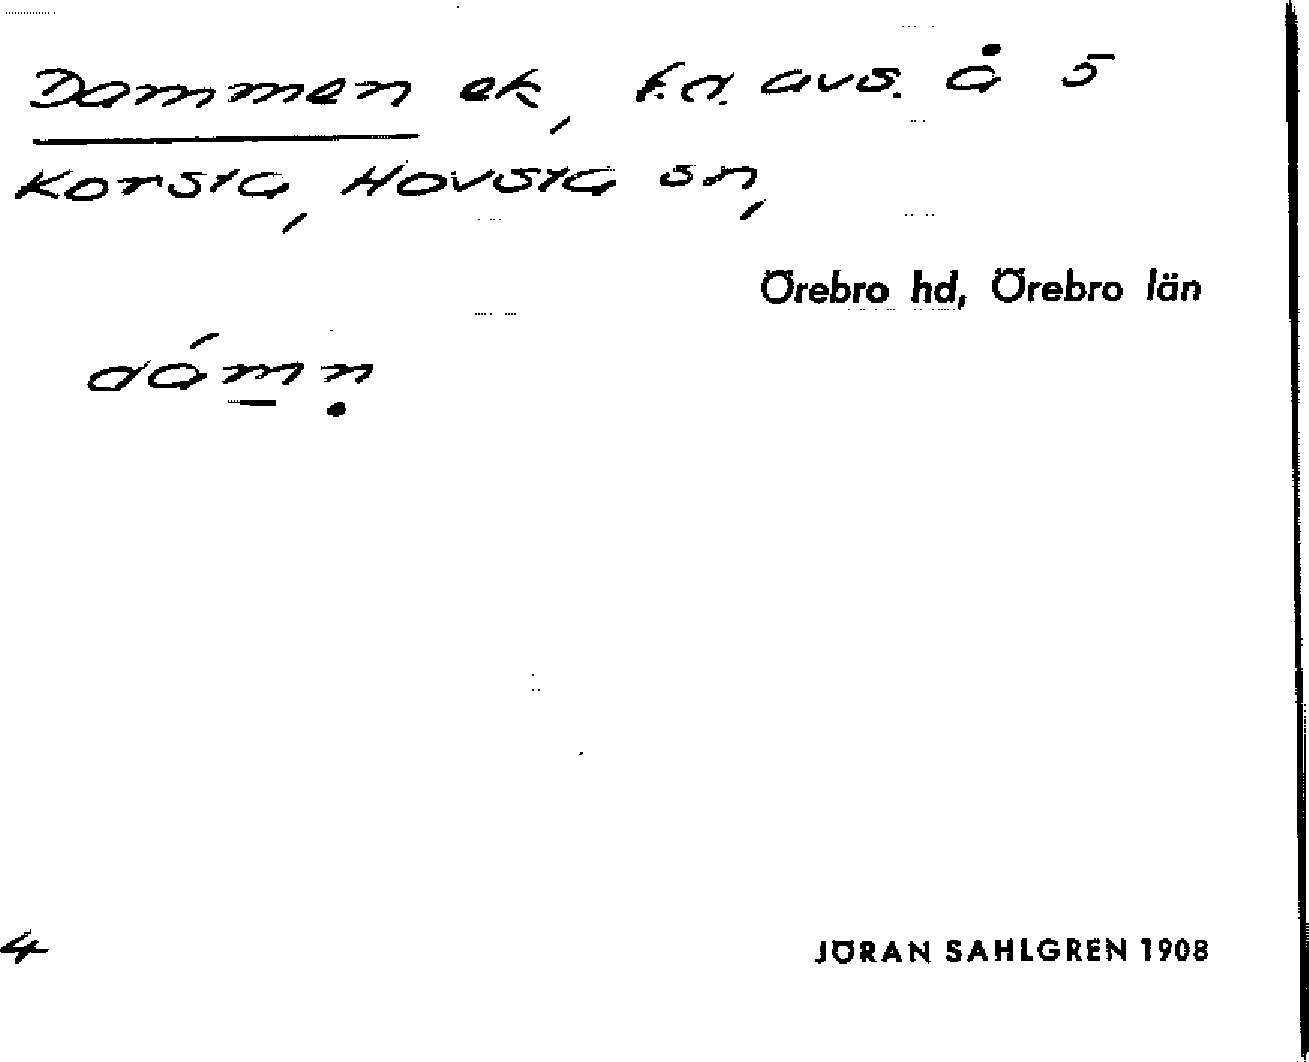 Dammen ek, f.d. avs. å 5
Korsta, Hovsta sn,
Örebro hd, Örebro län
dám̲ṇ
4
JÖRAN SAHLGREN 1908